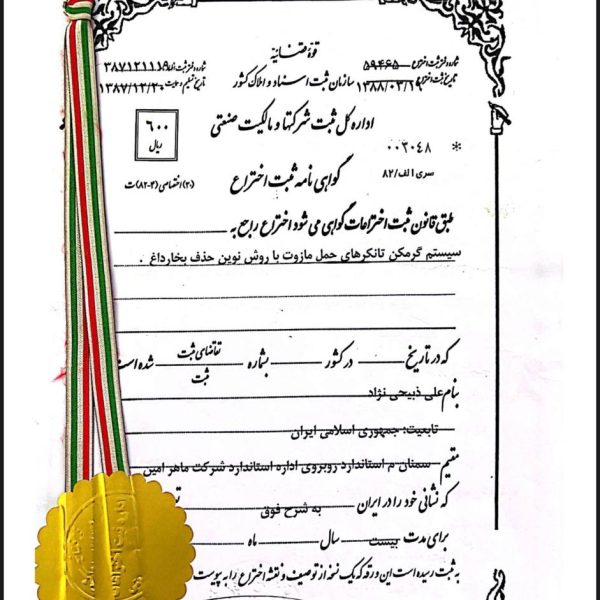 قوهٔ قضائیه
شماره دفتر ثبت اختراع ۵۹۴۶۵
شماره دفتر ثبت اظهارنامه ۳۸۷۱۲۱۱۱۹
سازمان ثبت اسناد و املاک کشور
تاریخ ثبت اختراع
۱۳۸۸/۰۳/۱۹
تاریخ تسلیم
۱۳۸۷/۱۲/۲۰
اداره کل ثبت شرکتها و مالکیت صنعتی
۶۰۰
ریال
* ۰۰۳۰۴۸
سری ا الف/۸۲
گواهی نامه ثبت اختراع
(۳۰) اختصاصی (۳-۸۲) ت
طبق قانون ثبت اختراعات گواهی می شود اختراع راجع به
سیستم گرمکن تانکرهای حمل مازوت با روش نوین حذف بخارداغ .
که در تاریخ در کشور بشماره تقاضای ثبت شده است
ثبت
بنام علی ذبیحی نژاد
تابعیت: جمهوری اسلامی ایران
مقیم سمنان م استاندارد روبروی اداره استاندارد شرکت ماهر امین
که نشانی خود را در ایران به شرح فوق
برای مدت بیست سال ماه
به ثبت رسیده است این ورقه که یک نسخه از توصیف و نقشه اختراع را به پیوست